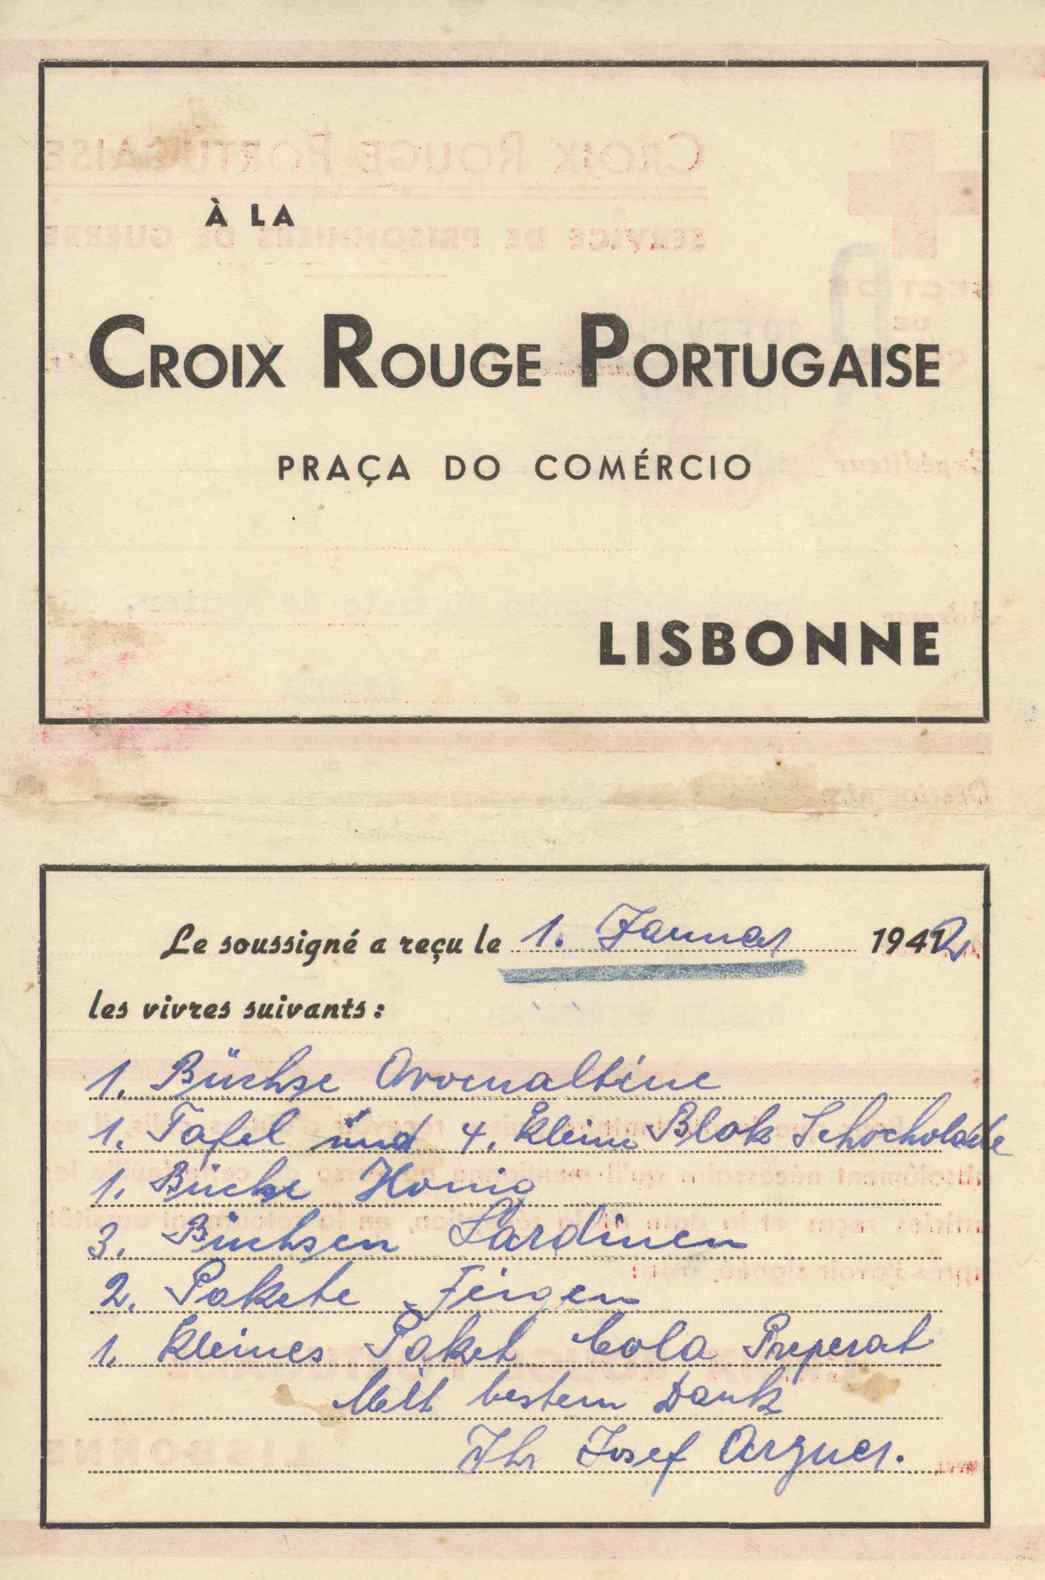 À LA
CROIX ROUGE PORTUGAISE
PRAÇA DO COMÉRCIO
LISBONNE
Le soussigné a reçu le 1. Januar 1942
les vivres suivants:
1. Büchse Ovomaltine
1. Tafel und 4. kleine Blok Schocholade
1. Büchse Honig
3. Büchsen Sardinen
2. Pakete Feigen
1. kleines Paket Cola Preperat
Mit bestem Dank
Ihr Josef